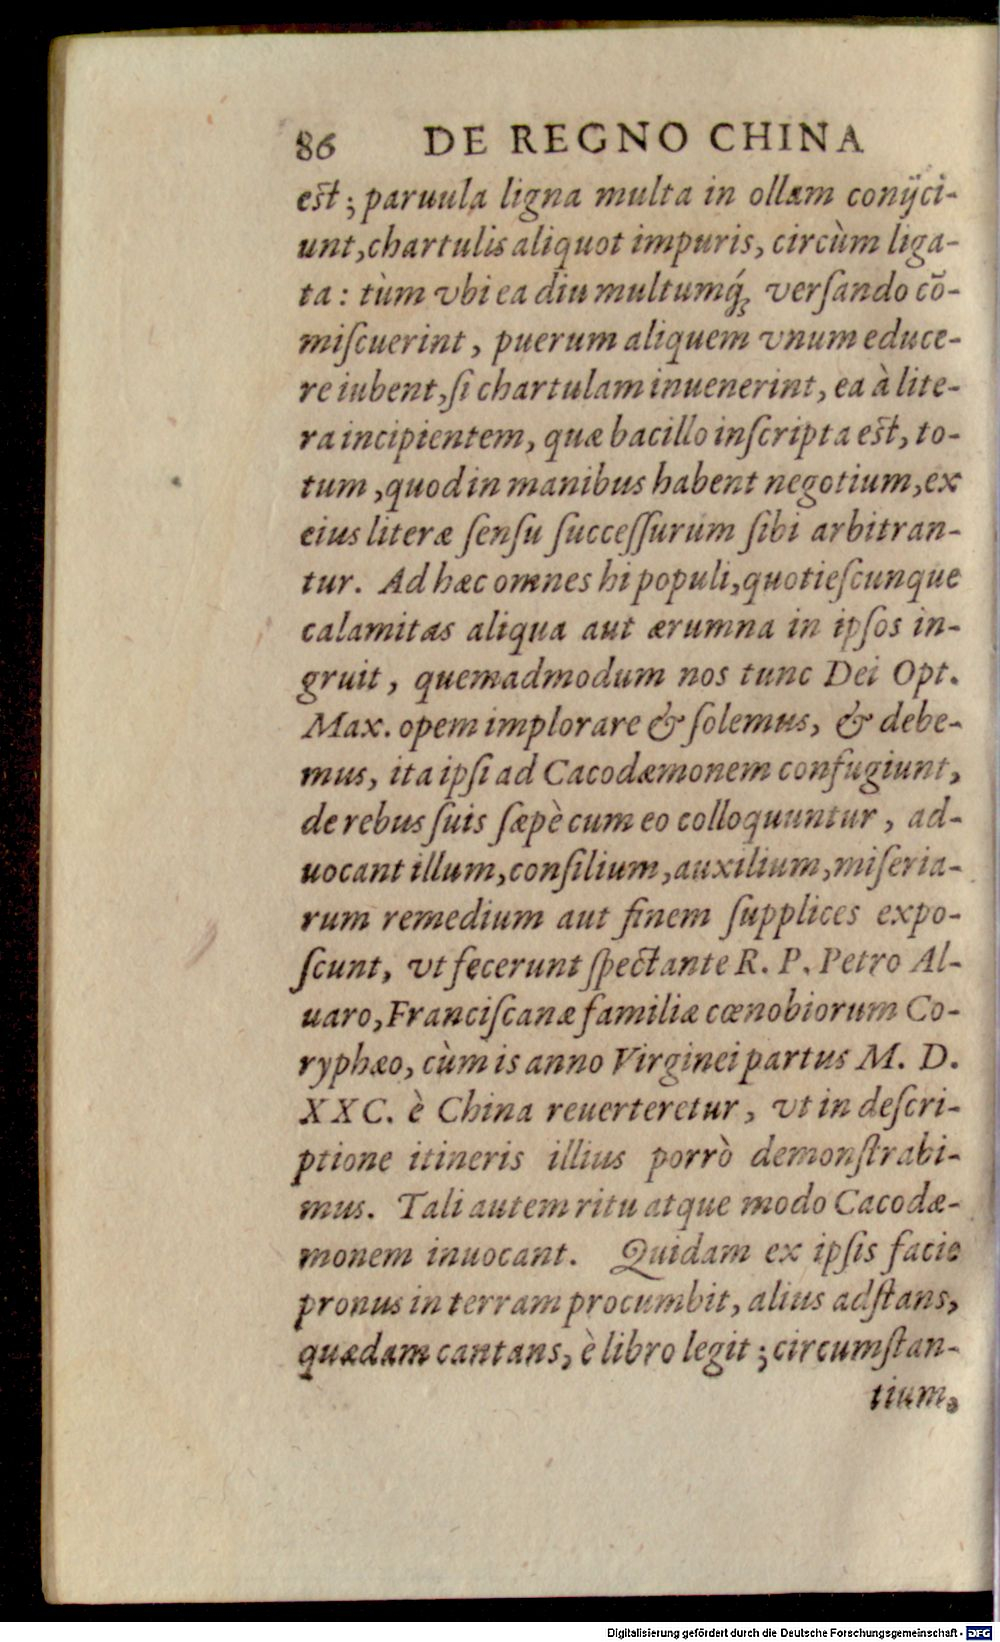 86 DE REGNO CHINA
est; paruula ligna multa in ollam conÿci-
unt, chartulis aliquot impuris, circùm liga-
ta: tùm vbi ea diu multumq́; verſando cō-
miſcuerint, puerum aliquem vnum educe-
re iubent, ſi chartulam inuenerint, ea à lite-
ra incipientem, quæ bacillo inſcripta est, to-
tum, quod in manibus habent negotium, ex
eius literæ ſenſu ſucceſſurum ſibi arbitran-
tur. Ad hæc omnes hi populi, quotieſcunque
calamitas aliqua aut ærumna in ipſos in-
gruit, quemadmodum nos tunc Dei Opt.
Max. opem implorare & ſolemus, & debe-
mus, ita ipſi ad Cacodæmonem confugiunt,
de rebus ſuis ſæpè cum eo colloquuntur, ad-
uocant illum, conſilium, auxilium, miſeria-
rum remedium aut finem ſupplices expo-
ſcunt, vt fecerunt ſpectante R. P. Petro Al-
uaro, Franciſcanæ familiæ cœnobiorum Co-
ryphæo, cùm is anno Virginei partus M. D.
XXC. è China reuerteretur, vt in deſcri-
ptione itineris illius porrò demonſtrabi-
mus. Tali autem ritu atque modo Cacodæ-
monem inuocant. Quidam ex ipſis facie
pronus in terram procumbit, alius adſtans,
quædam cantans, è libro legit; circumſtan-
tium,
Digitalisierung gefördert durch die Deutsche Forschungsgemeinschaft - DFG